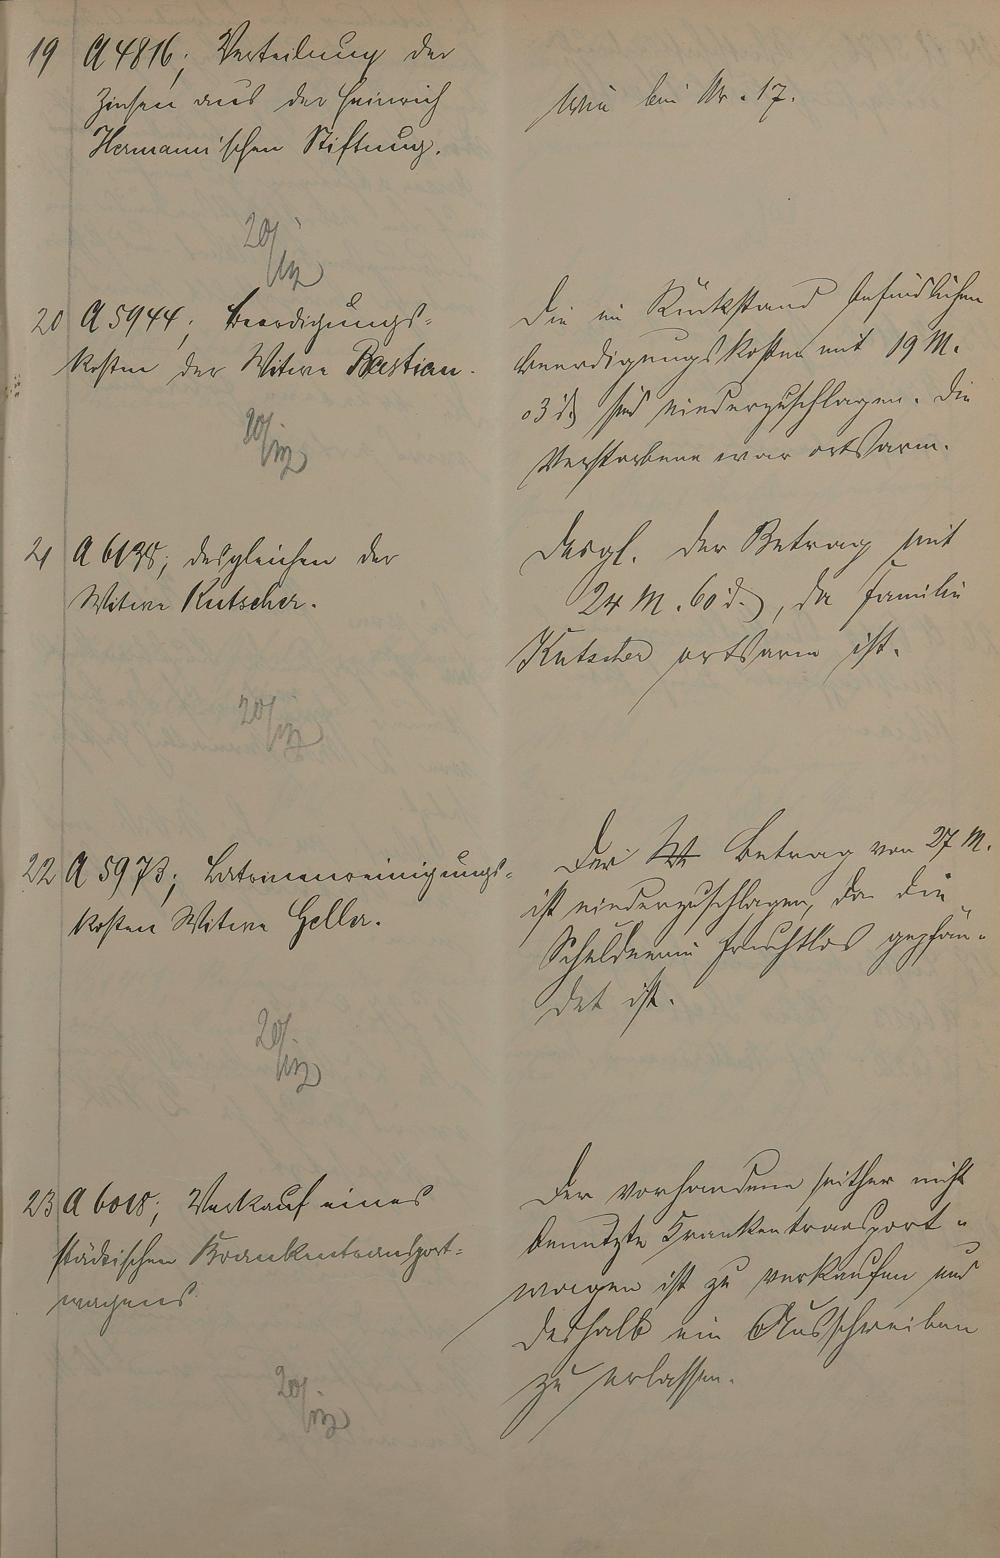 19 A 4816; Verteilung der
Zinsen aus der Heinrich
Hermann'schen Stiftung.
wie bei Nr. 17.
20/
20 A 5944; Beerdigungs-
kosten der Witwe Bastian.
Die im Rückstand befindlichen
Beerdigungskosten mit 19 M.
03 d sind niederzuschlagen. Die
Verstorbene war ortsarm.
20/
21 A 6135; desgleichen der
Witwe Kutscher.
Desgl. der Betrag mit
24 M. 60 d., da Familie
Kutscher ortsarm ist.
20/
22 A 5973; Latrinenreinigungs-
kosten Witwe Geller.
Der Betrag von 27 M.
ist niederzuschlagen, da die
Schuldnerin fruchtlos gepfän-
det ist.
20/
23 A 6018; Verkauf eines
städtischen Krankentransport-
wagens.
Der vorhandene seither nicht
benutzte Krankentransport-
wagen ist zu verkaufen und
deshalb ein Ausschreiben
zu erlassen.
20/